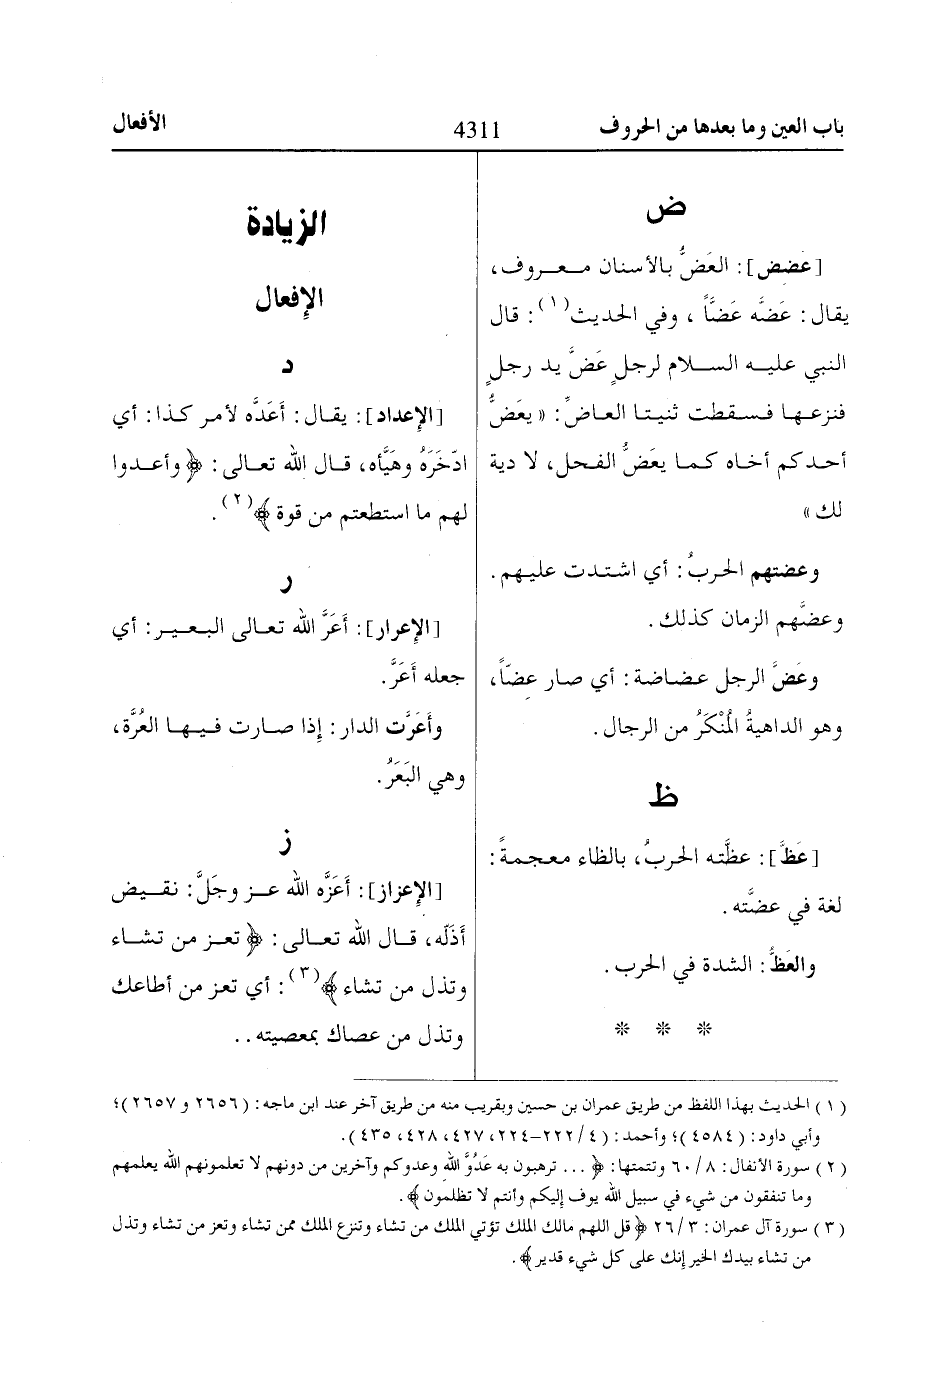 باب العين وما بعدها من الحروف
4311
الأفعال
ض
[عضض]: العَضُّ بالأسنان معروف،
يقال: عَضَّه عَضّاً، وفي الحديث(١): قال
النبي عليه السلام لرجلٍ عَضَّ يد رجلٍ
فنزعها فسقطت ثنيتا العاضِّ: «يعَضُّ
أحدكم أخاه كما يعَضُّ الفحل، لا دية
لك»
وعضتهم الحربُ: أي اشتدت عليهم.
وعضَّهم الزمان كذلك.
وعَضَّ الرجل عضاضة: أي صار عضّاً،
وهو الداهيةُ المُنْكَرُ من الرجال.
ظ
[عَظَّ]: عظَّته الحربُ، بالظاء معجمةً:
لغة في عضَّته.
والعَظُّ: الشدة في الحرب.
* * *
الزيادة
الإفعال
د
[الإعداد]: يقال: أَعَدَّه لأمر كذا: أي
ادّخَرَهُ وهَيَّأه، قال الله تعالى: ﴿وأعدوا
لهم ما استطعتم من قوة﴾(٢).
ر
[الإعرار]: أَعَرَّ الله تعالى البعير: أي
جعله أَعَرَّ.
وأَعَرَّت الدار: إذا صارت فيها العُرَّة،
وهي البَعَرُ.
ز
[الإعزاز]: أَعَزَّه الله عز وجَلَّ: نقيض
أَذَلّه، قال الله تعالى: ﴿تعز من تشاء
وتذل من تشاء﴾(٣): أي تعز من أطاعك
وتذل من عصاك بمعصيته..
(١) الحديث بهذا اللفظ من طريق عمران بن حسين وبقريب منه من طريق آخر عند ابن ماجه: (٢٦٥٦ و ٢٦٥٧)؛
وأبي داود: (٤٥٨٤)؛ وأحمد: (٤/ ٢٢٢-٢٢٤، ٤٢٧، ٤٢٨، ٤٣٥).
(٢) سورة الأنفال: ٨/ ٦٠ وتتمتها: ﴿... ترهبون به عَدُوَّ الله وعدوكم وآخرين من دونهم لا تعلمونهم الله يعلمهم
وما تنفقون من شيء في سبيل الله يوف إليكم وأنتم لا تظلمون﴾.
(٣) سورة آل عمران: ٣/ ٢٦ ﴿قل اللهم مالك الملك تؤتي الملك من تشاء وتنزع الملك ممن تشاء وتعز من تشاء وتذل
من تشاء بيدك الخير إنك على كل شيء قدير﴾.